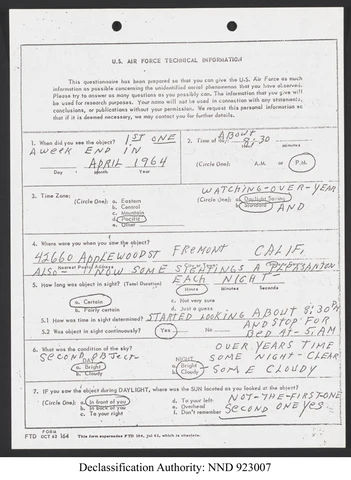 U.S. AIR FORCE TECHNICAL INFORMATION
This questionnaire has been prepared so that you can give the U.S. Air Force as much
information as possible concerning the unidentified aerial phenomenon that you have observed.
Please try to answer as many questions as you possibly can. The information that you give will
be used for research purposes. Your name will not be used in connection with any statements,
conclusions, or publications without your permission. We request this personal information so
that if it is deemed necessary, we may contact you for further details.
1. When did you see the object? 1ST ONE
A WEEK END IN
APRIL 1964
Day Month Year
2. Time of day: ABOUT 8:30
Minutes
(Circle One): A.M. or P.M.
3. Time Zone:
(Circle One): a. Eastern
b. Central
c. Mountain
d. Pacific
e. Other
WATCHING-OVER-YEAR
(Circle One): a. Daylight Saving
b. Standard AND
4. Where were you when you saw the object?
42660 APPLEWOOD ST FREMONT CALIF.
Nearest Postal Address
ALSO - NOW SOME SIGHTINGS A PLEASANTON
5. How long was object in sight? (Total Duration) EACH NIGHT-
Hours Minutes Seconds
a. Certain c. Not very sure
b. Fairly certain d. Just a guess
5.1 How was time in sight determined? STARTED LOOKING ABOUT 8:30 PM
AND STOP FOR
5.2 Was object in sight continuously? Yes No BED AT-5AM
6. What was the condition of the sky? OVER YEARS TIME
SECOND OBJECT
DAY NIGHT SOME NIGHT-CLEAR
a. Bright a. Bright
b. Cloudy b. Cloudy SOME CLOUDY
7. IF you saw the object during DAYLIGHT, where was the SUN located as you looked at the object?
NOT-THE-FIRST-ONE
(Circle One): a. In front of you d. To your left
b. In back of you e. Overhead SECOND ONE YES
c. To your right f. Don't remember
FORM
FTD OCT 62 164 This form supersedes FTD 164, Jul 61, which is obsolete.
Declassification Authority: NND 923007